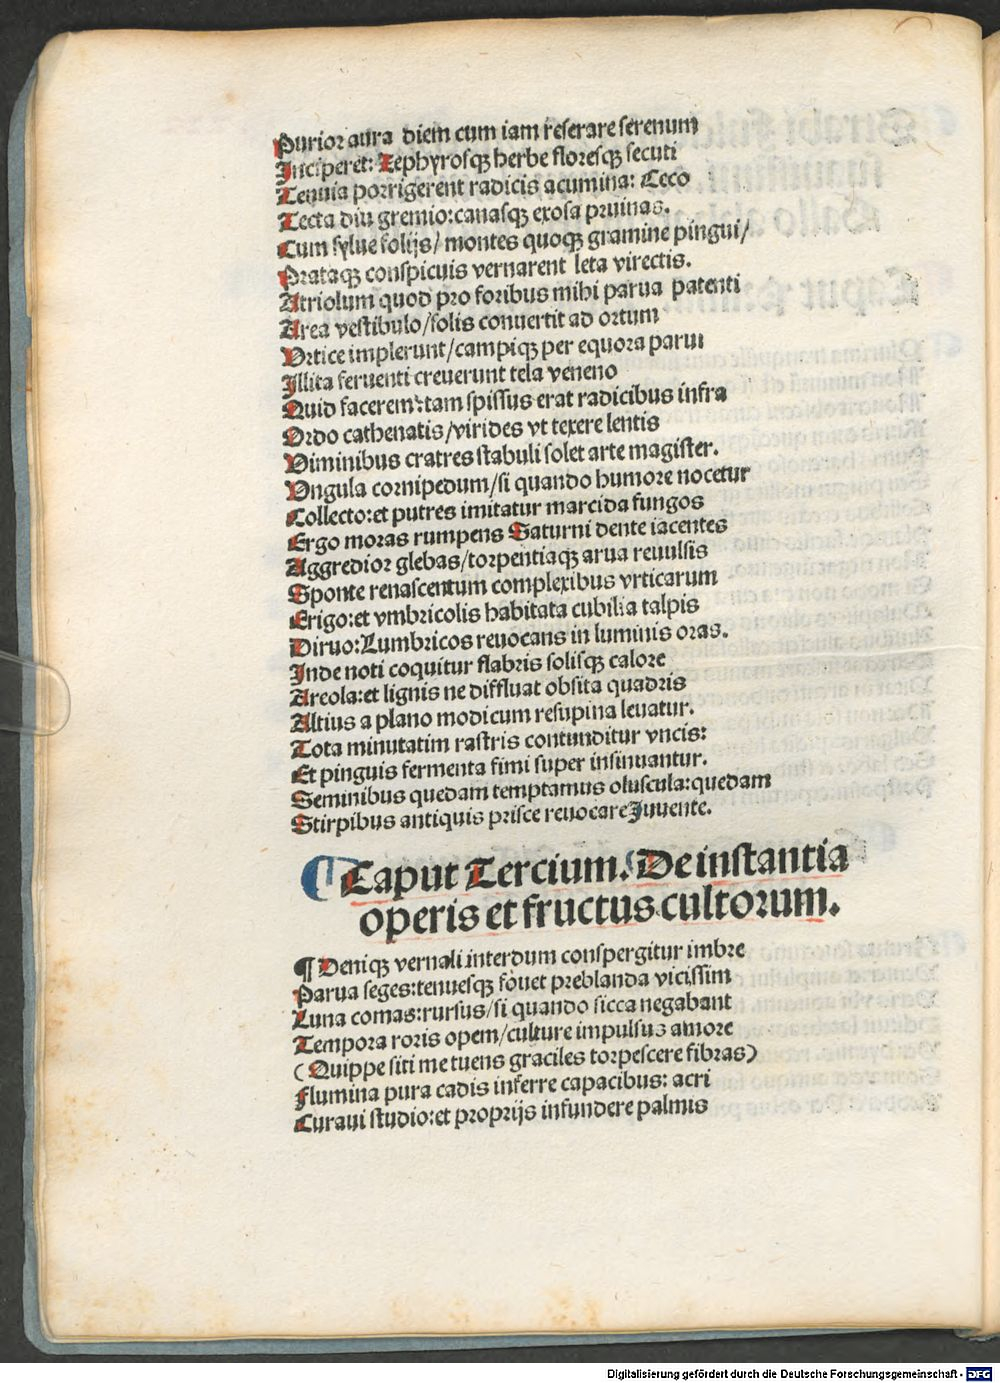 Purior aura diem cum iam reserare serenum
Inciperet: Zephyrosqꝫ herbe floresqꝫ secuti
Tenuia porrigerent radicis acumina: Ceco
Tecta diu gremio: canasqꝫ exosa pruinas.
Cum sylue folijs/ montes quoqꝫ gramine pingui/
Prataqꝫ conspicuis vernarent leta virectis.
Atriolum quod pro foribus mihi parua patenti
Area vestibulo/ solis conuertit ad ortum
Vrtice implerunt/ campiqꝫ per equora parui
Illita feruenti creuerunt tela veneno
Quid facerem: tam spissus erat radicibus infra
Ordo cathenatis/ virides vt texere lentis
Viminibus cratres stabuli solet arte magister.
Vngula cornipedum/ si quando humore nocetur
Collecto: et putres imitatur marcida fungos
Ergo moras rumpens Saturni dente iacentes
Aggredior glebas/ torpentiaqꝫ arua reuulsis
Sponte renascentum complexibus vrticarum
Erigo: et vmbricolis habitata cubilia talpis
Diruo: Lumbricos reuocans in luminis oras.
Inde noti coquitur flabris solisqꝫ calore
Areola: et lignis ne diffluat obsita quadris
Altius a plano modicum resupina leuatur.
Tota minutatim rastris contunditur vncis:
Et pinguis fermenta fimi super insinuantur.
Seminibus quedam temptamus oluscula: quedam
Stirpibus antiquis prisce reuocare Juuente.
¶ Caput Tercium. De instantia
operis et fructus cultorum.
¶ Deniqꝫ vernali interdum conspergitur imbre
Parua seges: tenuesqꝫ fouet preblanda vicissim
Luna comas: rursus/ si quando sicca negabant
Tempora roris opem/ culture impulsus amore
(Quippe siti metuens graciles torpescere fibras)
Flumina pura cadis inferre capacibus: acri
Curaui studio: et proprijs infundere palmis
Digitalisierung gefördert durch die Deutsche Forschungsgemeinschaft - DFG